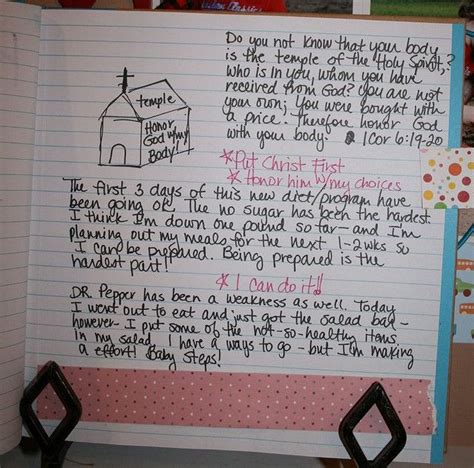 Do you not know that your body
is the temple of the Holy Spirit,
who is in you, whom you have
received from God? You are not
your own; You were bought with
a price. Therefore honor God
with your body. 1 Cor 6:19-20
temple
Honor
God w/my
Body!
*Put Christ First
*Honor him w/my choices
The first 3 days of this new diet/program have
been going ok. The no sugar has been the hardest
I think I'm down one pound so far - and I'm
planning out my meals for the next 1-2 wks so
I can be prepared. Being prepared is the
hardest part!
* I can do it!!
DR. Pepper has been a weakness as well. Today
I went out to eat and just got the salad bar -
however - I put some of the not-so-healthy items
in my salad. I have a ways to go - but I'm making
a effort! Baby steps!